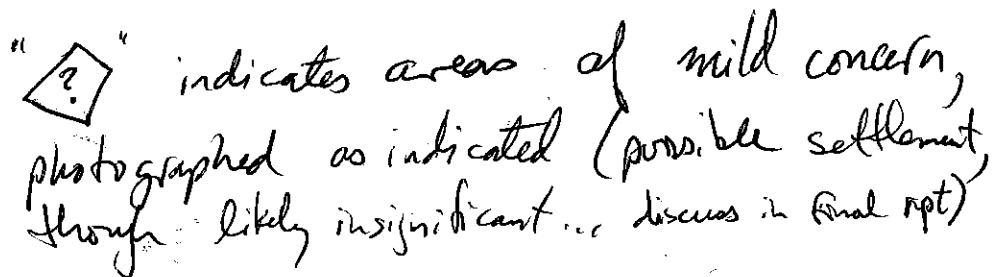 "?" indicates areas of mild concern,
photographed as indicated (possible settlement,
though likely insignificant... discuss in final rpt)